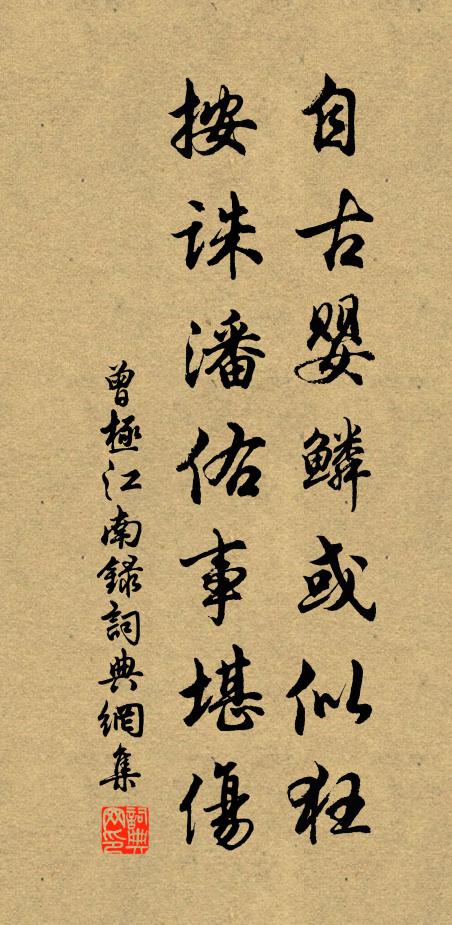 自古嬰鱗或似狂
按誅潘佑事堪傷
曾極江南錄詞典網集
詞典網印